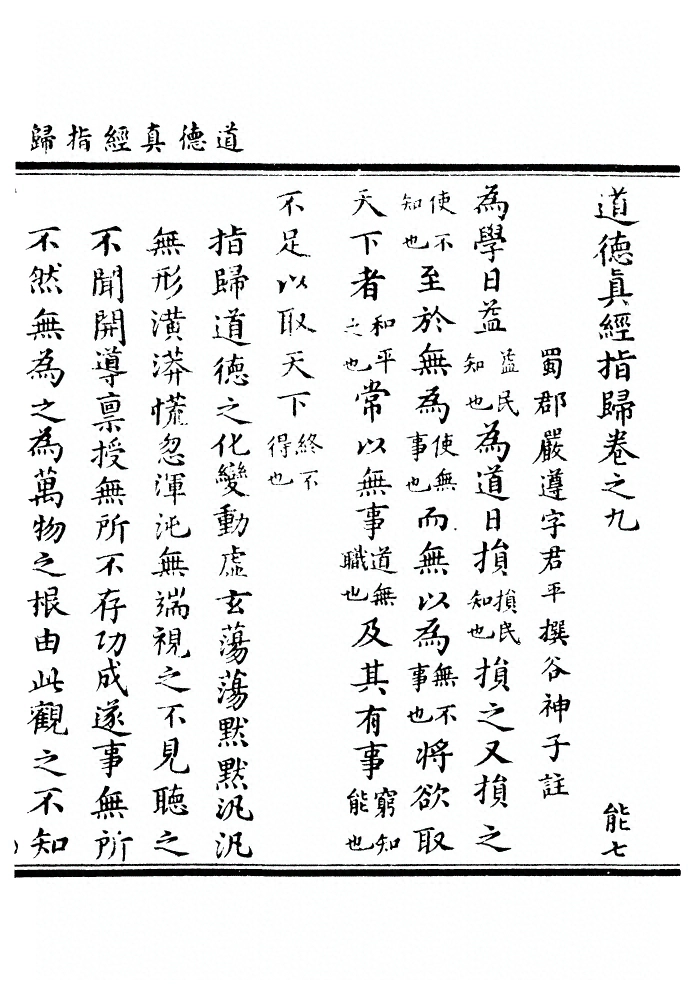 道德真經指歸
道德真經指歸卷之九 能七
蜀郡嚴遵字君平撰谷神子註
為學日益益民知也為道日損損民知也損之又損之
使不知也至於無為使無事也而無以為無不事也將欲取
天下者和平之也常以無事道無職也及其有事窮知能也
不足以取天下終不得也
指歸道德之化變動虛玄蕩蕩默默汎汎
無形潢漭慌忽渾沌無端視之不見聽之
不聞開導稟授無所不存功成遂事無所
不然無為之為萬物之根由此觀之不知